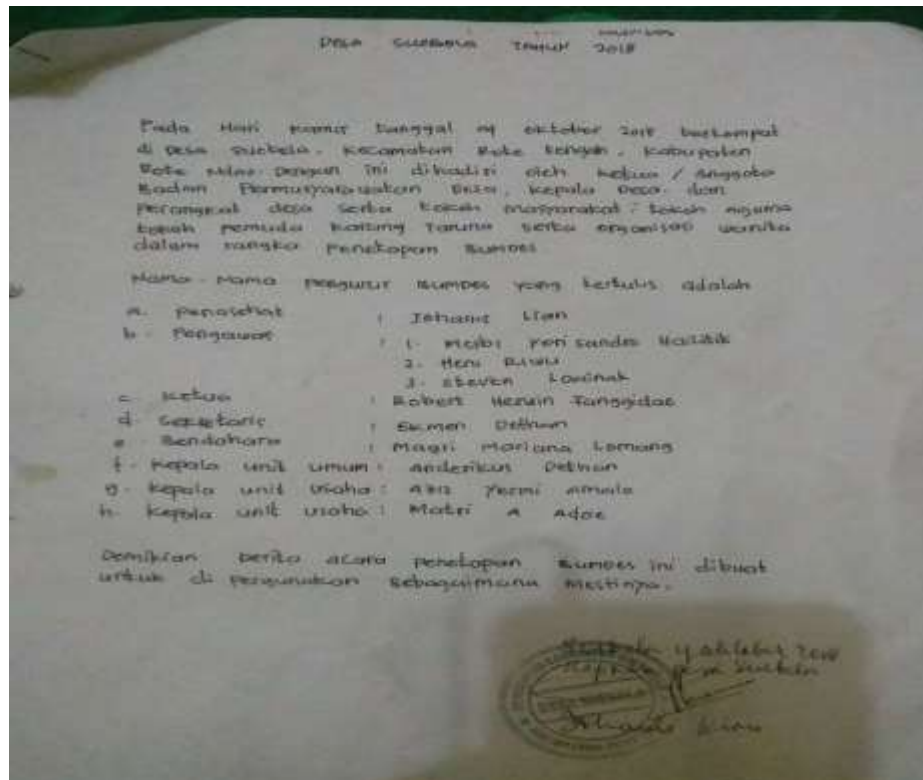 DESA SUEBELA TAHUN 2018
Pada Hari Kamis tanggal 04 oktober 2018 bertempat
di Desa Suebela, Kecamatan Rote tengah, Kabupaten
Rote Ndao. Dengan ini dihadiri oleh ketua / Anggota
Badan Permusyarawatan Desa, kepala Desa dan
perangkat desa serta tokoh masyarakat, tokoh agama
tokoh pemuda karang Taruna serta organisasi wanita
dalam rangka penetapan BUMDES
Nama-Nama pengurus BUMDES yang tertulis adalah
a. penasehat : Johanis Lian
b. Pengawas : 1. Melbi Yeri Sandro
2. Heni
3. Steven Lominak
c. Ketua : Robert Herwin Tanggidae
d. Sekretaris : Ekmen Dethan
e. Bendahara : Magri Mariana Lomang
f. Kepala unit umum : Anderikus Dethan
g. Kepala unit usaha : Yermi
h. Kepala unit usaha : Matri A Adoe
Demikian berita acara penetapan BUMDES ini dibuat
untuk di pergunakan sebagaimana mestinya.
4 oktober 2018
Kepala Desa Suebela
Johanis Lian